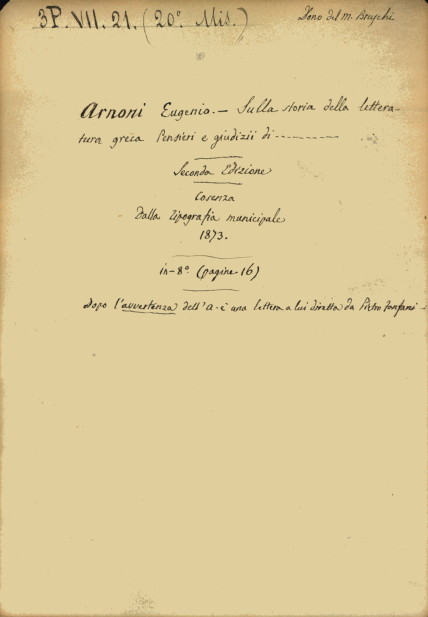 3P. VII. 21. (20º Mis.)
Dono del m. Bruschi
Arnoni Eugenio. — Sulla storia della lettera-
tura greca Pensieri e giudizii di ----------
Seconda Edizione
Cosenza
Dalla Tipografia municipale
1873.
in-8º (pagine 16)
Dopo l'avvertenza dell'a. è una lettera a lui diretta da Pietro Fanfani -